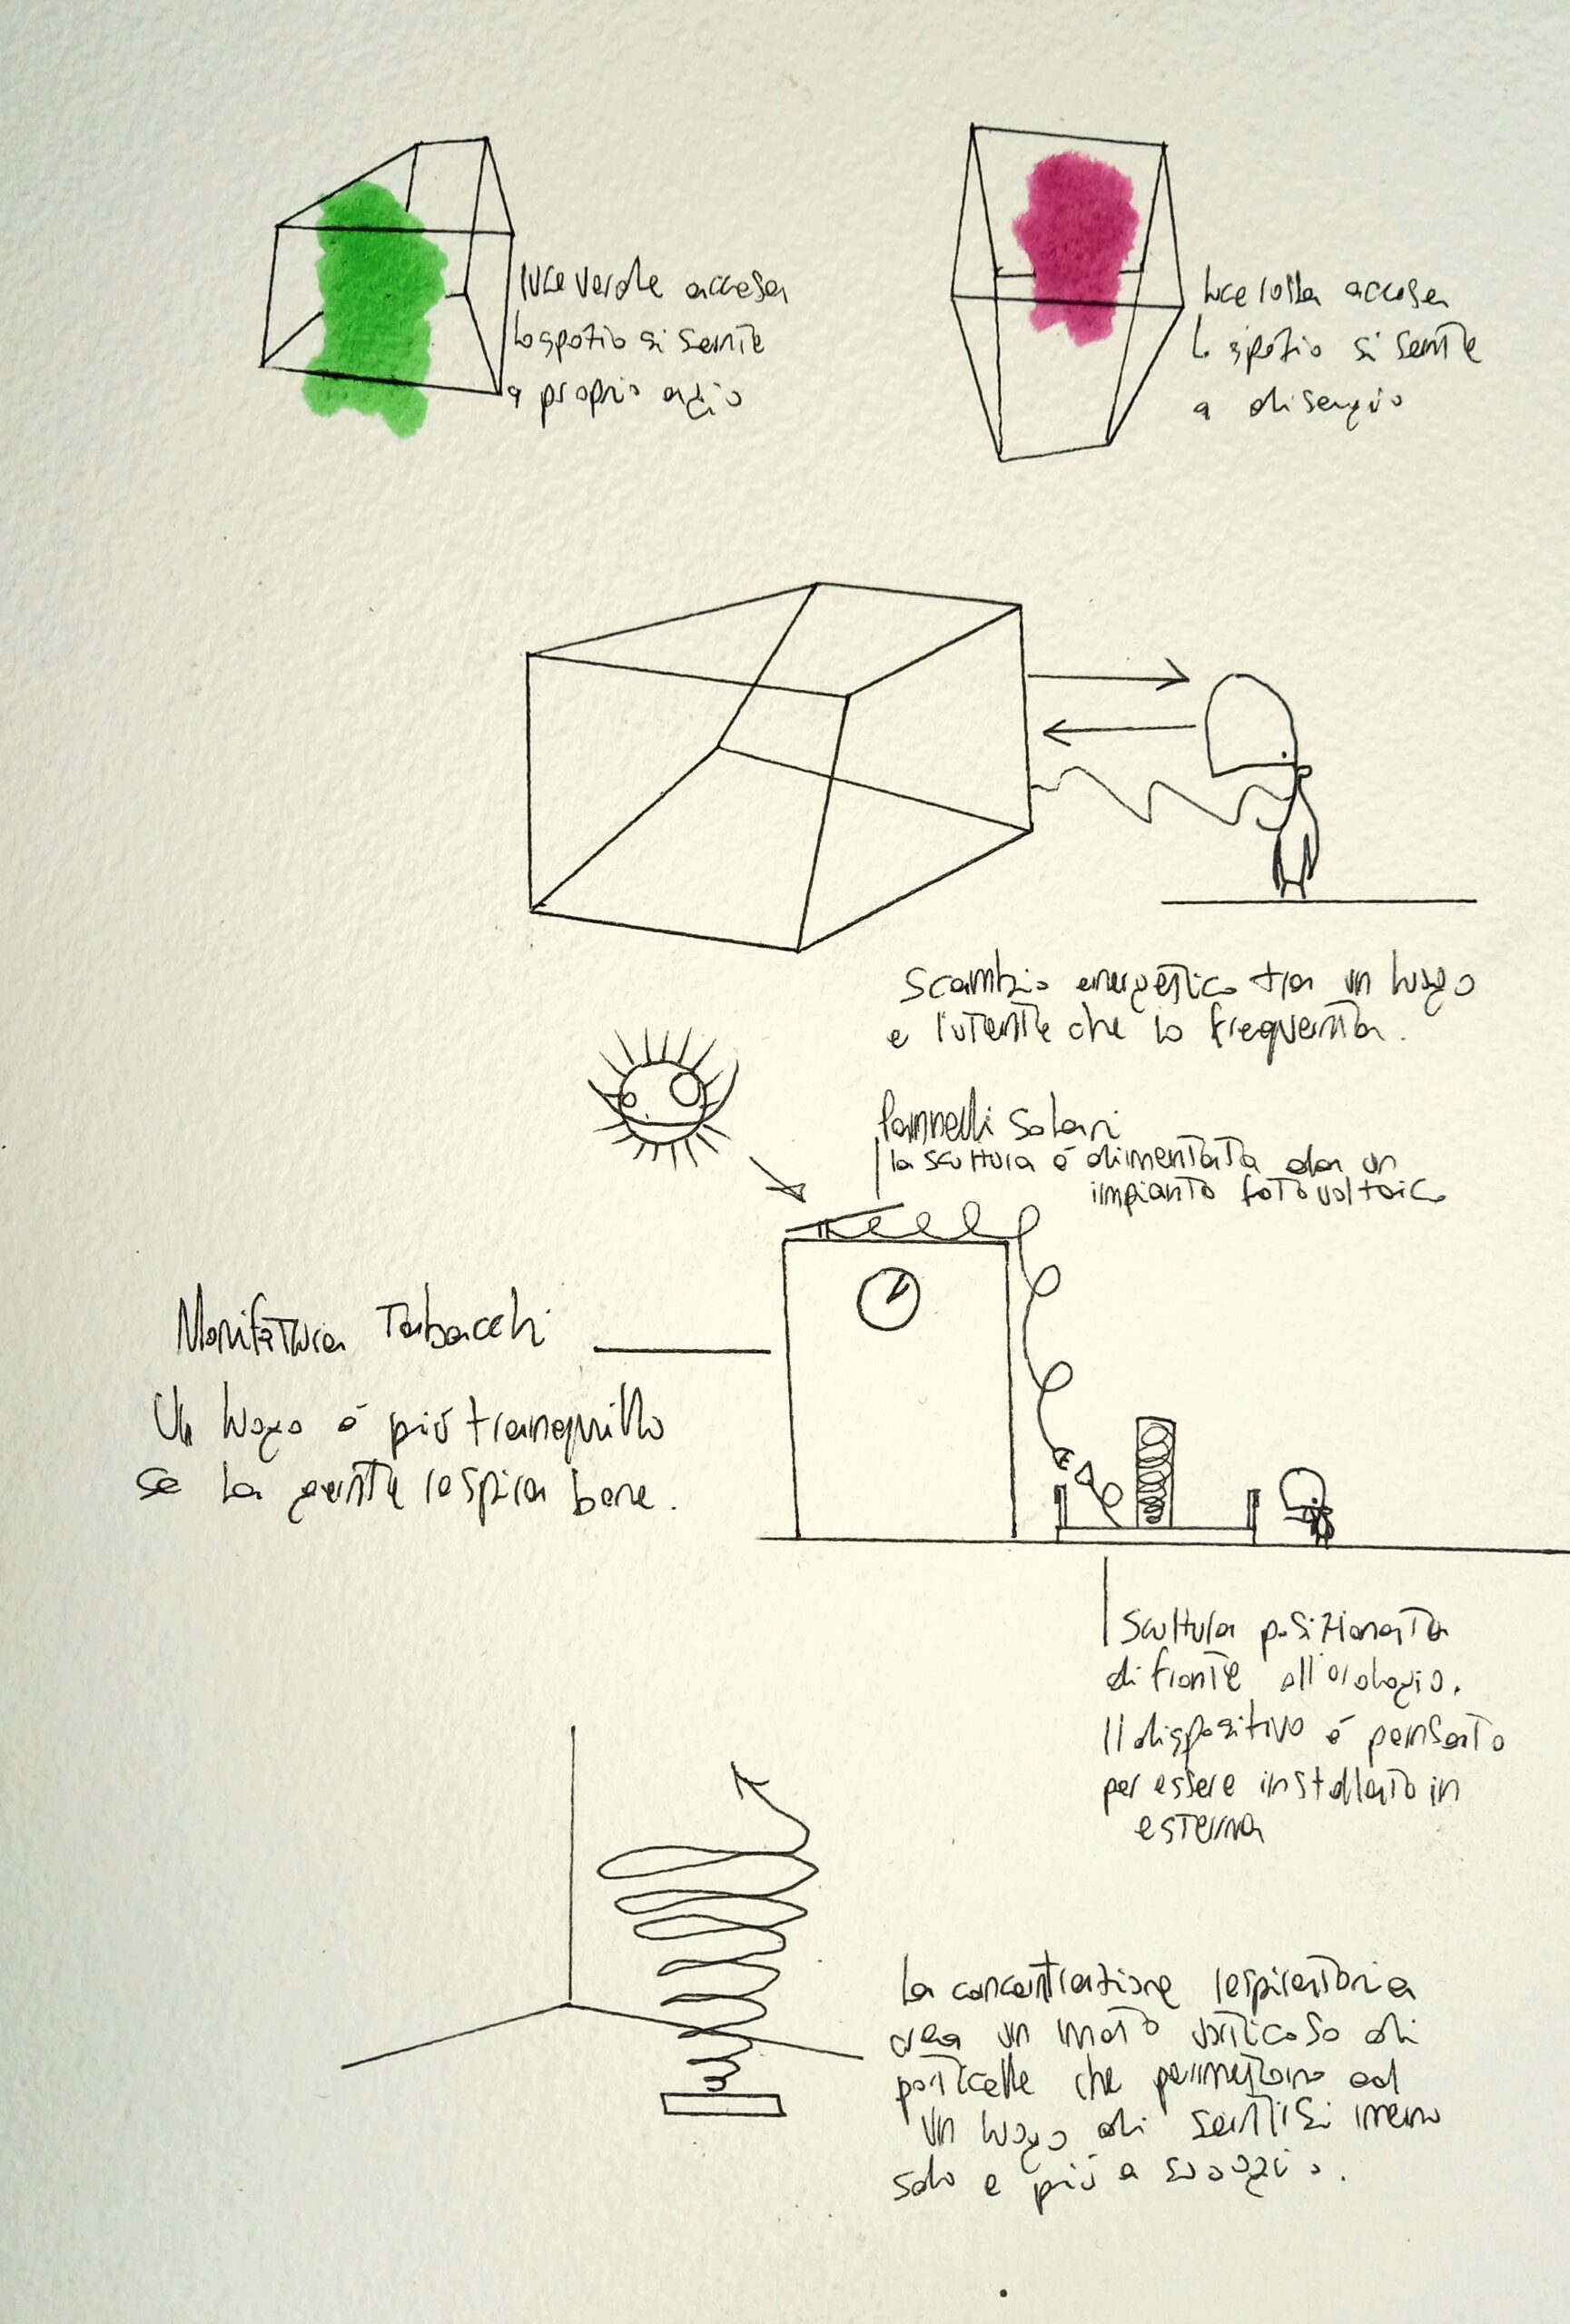 luce verde accesa
lo spazio si sente
a proprio agio
luce rossa accesa
lo spazio si sente
a disagio
Scambio energetico tra un luogo
e l'utente che lo frequenta.
Pannelli Solari
la scultura è alimentata da un
impianto fotovoltaico
Manifattura Tabacchi
Un luogo è più tranquillo
se la gente respira bene.
Scultura posizionata
di fronte all'orologio.
Il dispositivo è pensato
per essere installato in
esterna
La concentrazione respiratoria
crea un moto vorticoso di
particelle che permettono ad
un luogo di sentirsi meno
solo e più a suo agio.